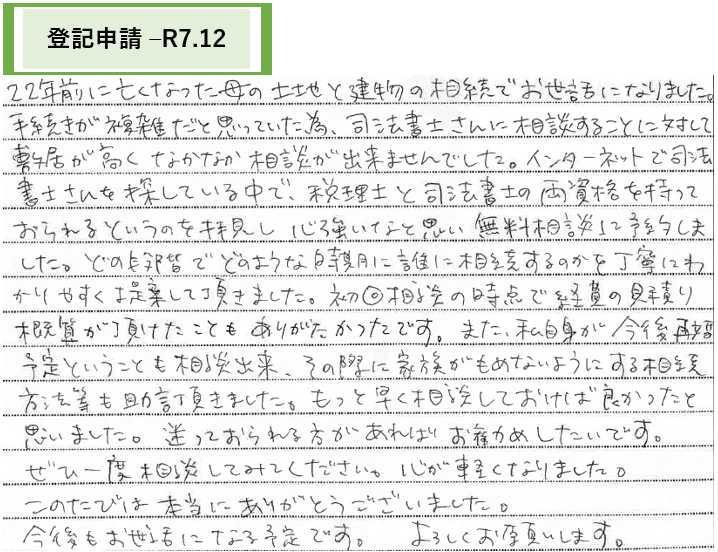 登記申請 –R7.12
22年前に亡くなった母の土地と建物の相続でお世話になりました。
手続きが複雑だと思っていた為、司法書士さんに相談することに対して
敷居が高くなかなか相談が出来ませんでした。インターネットで司法
書士さんを探している中で、税理士と司法書士の両資格を持って
おられるというのを拝見し 心強いなと思い 無料相談に予約しま
した。どの段階でどのような時期に誰に相続するのかを丁寧にわ
かりやすく提案して頂きました。初回相談の時点で経費の見積り
概算が頂けたこともありがたかったです。また、私自身が今後再婚
予定ということも相談出来、その際に家族がもめないようにする相続
方法等も助言頂きました。もっと早く相談しておけば良かったと
思いました。迷っておられる方があればお勧めしたいです。
ぜひ一度相談してみてください。心が軽くなりました。
このたびは本当にありがとうございました。
今後もお世話になる予定です。 よろしくお願いします。